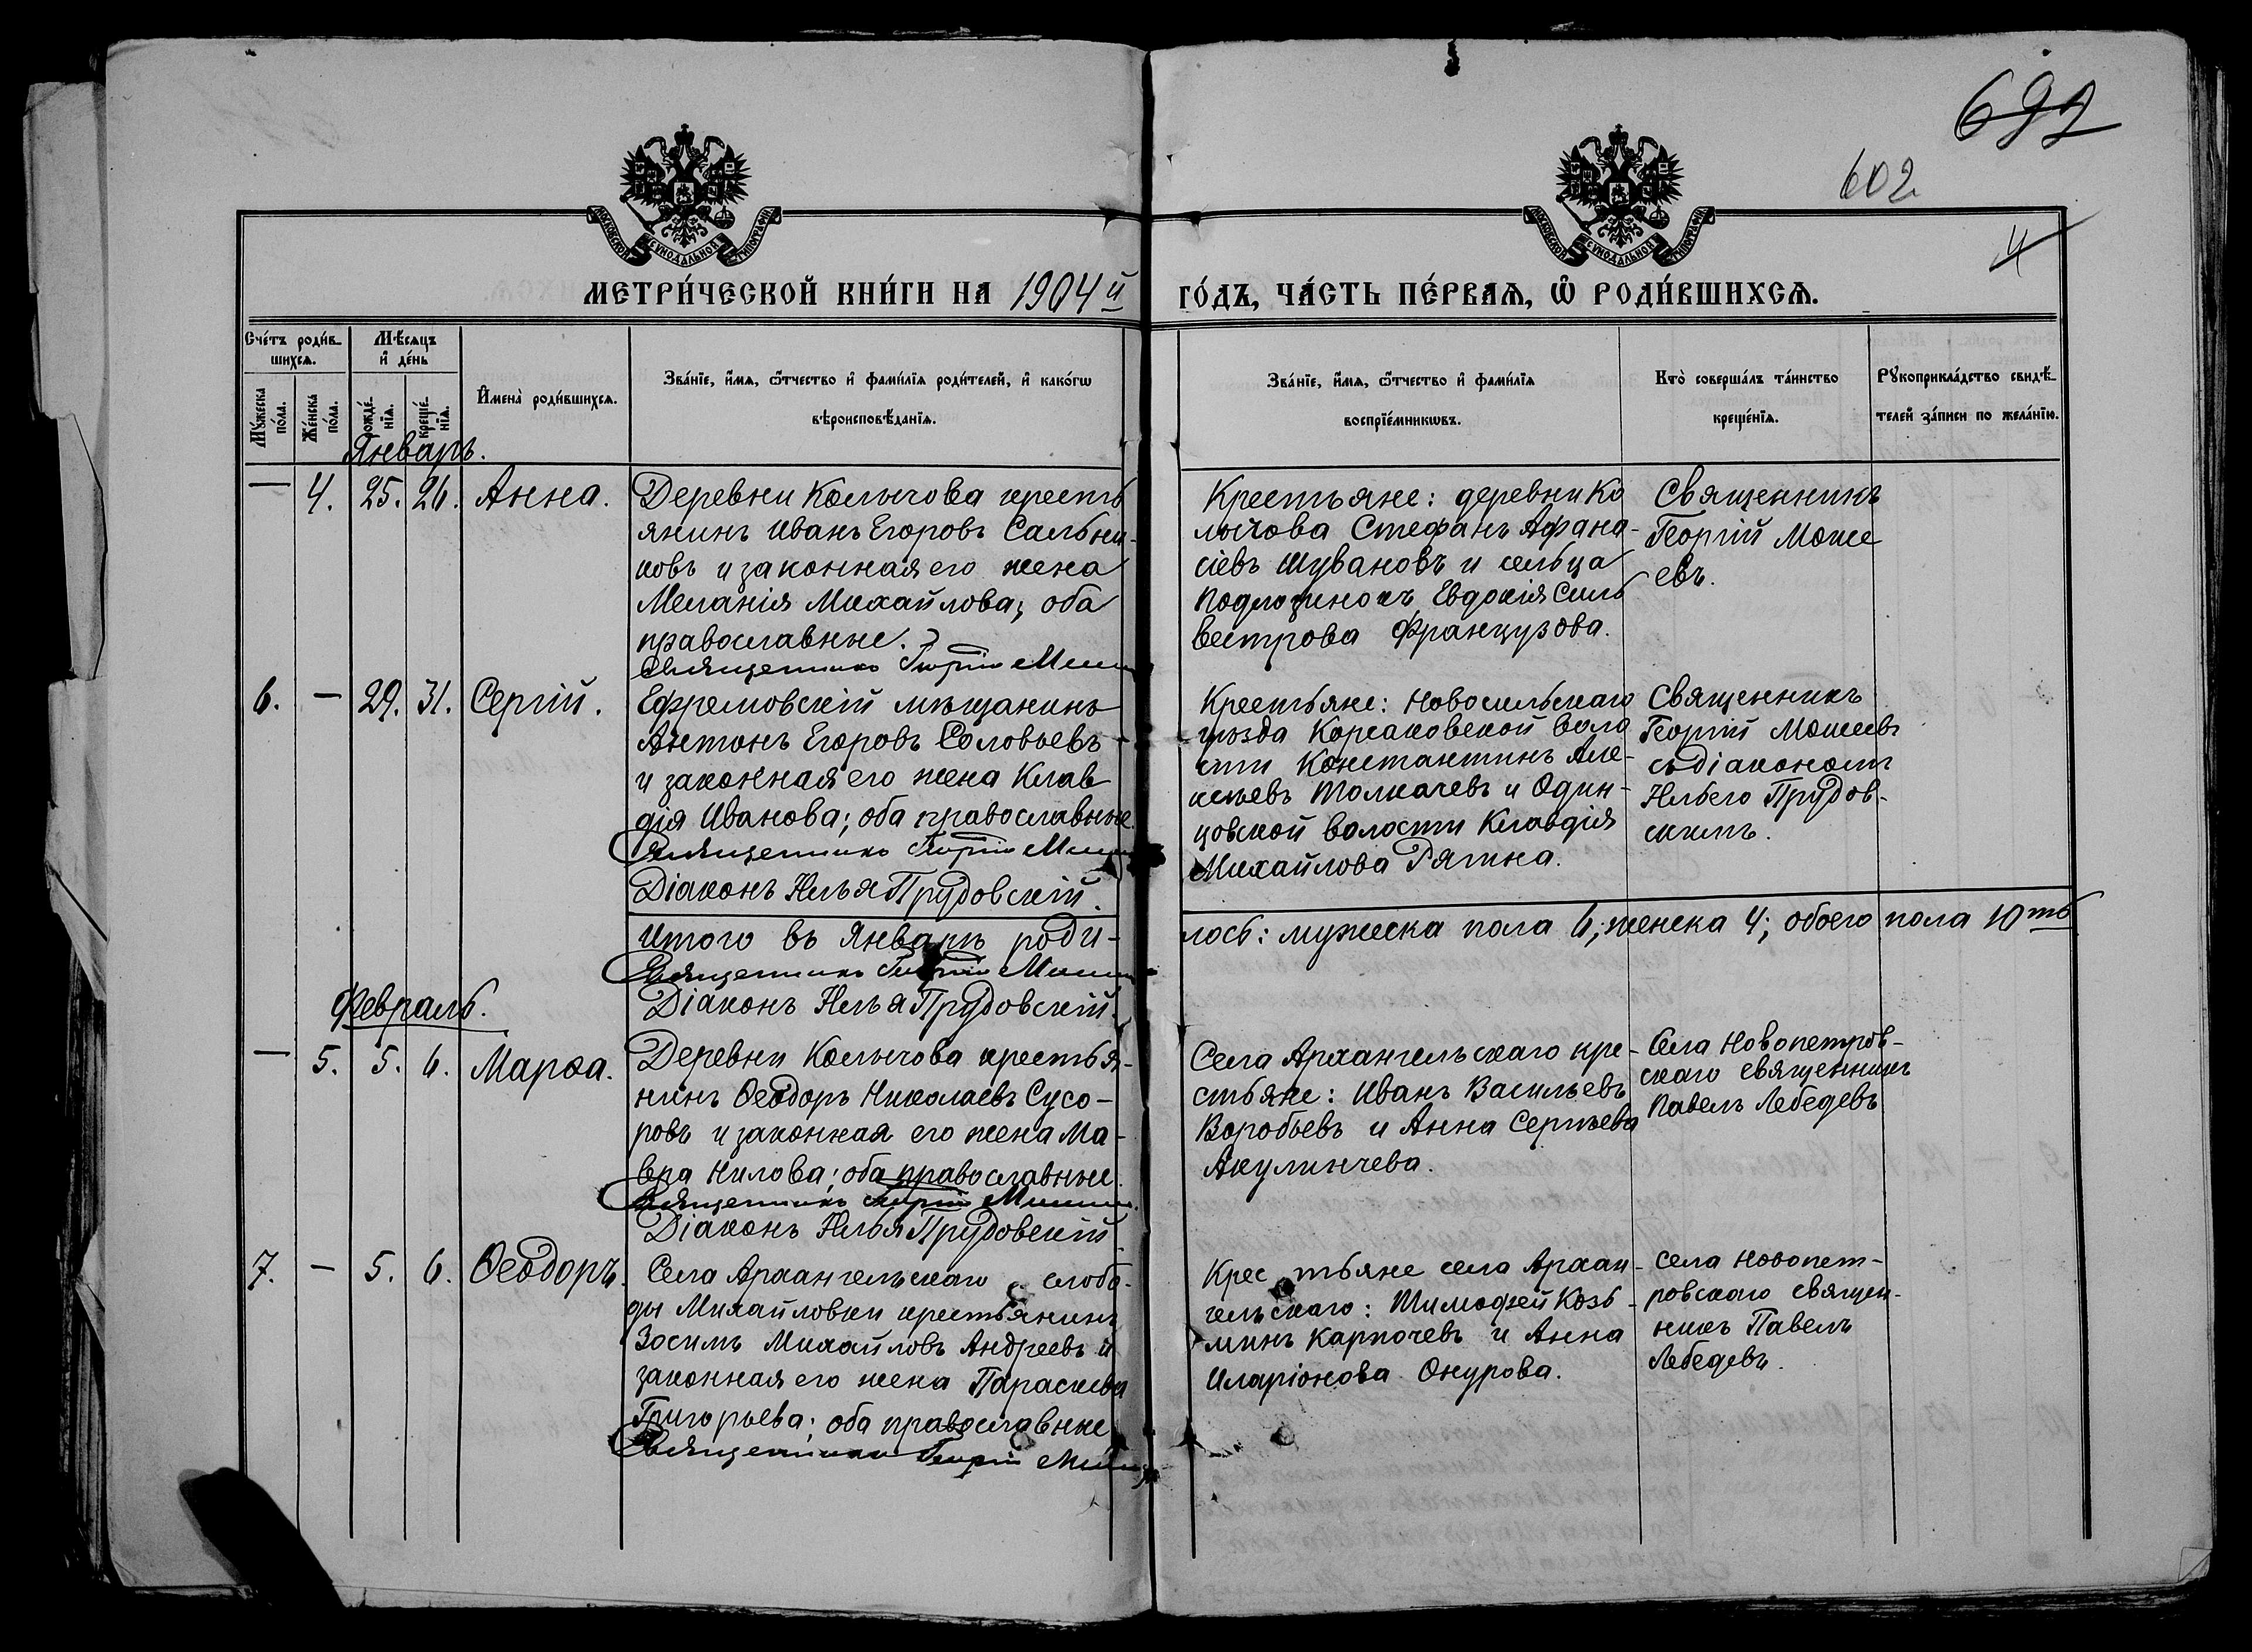 692
602
4
МОСКОВСКОЙ СѴНОДАЛЬНОЙ ТИПОГРАФІИ
МОСКОВСКОЙ СѴНОДАЛЬНОЙ ТИПОГРАФІИ
МЕТРИ́ЧЕСКОЙ КНИ́ГИ НА 1904й ГО́ДЪ, ЧА́СТЬ ПЕ́РВАѦ, Ѡ҆ РОДИ́ВШИХСѦ.
Сче́тъ роди́в-
шихсѧ.
Мѣ́сѧцъ
и҆ де́нь
Мꙋ́жеска
по́ла.
Же́нска
по́ла.
рожде́-
нїѧ.
креще́-
нїѧ.
И҆мена̀ роди́вшихсѧ.
Зва́нїе, и҆́мѧ, ѻ҆́тчество и҆ фами́лїѧ роди́телей, и҆ како́гѡ
вѣроисповѣ́данїѧ.
Зва́нїе, и҆́мѧ, ѻ҆́тчество и҆ фами́лїѧ
воспрїе́мникѡвъ.
Кто̀ соверша́лъ та́инство
креще́нїѧ.
Рꙋкоприкла́дство свидѣ́-
телей за́писи по жела́нїю.
Январь.
— 4. 25. 26. Анна.
Деревни Колычова кресть
янинъ Иванъ Егоровъ Сальни-
ковъ и законная его жена
Меланія Михайлова; оба
православные.
Священникъ Георгій
Крестьяне: деревни Ко
лычова Стефанъ Афана-
сіевъ Шувановъ и сельца
Подлозинокъ Евдокія Силь
вестрова Французова.
Священникъ
Георгій Моисе
евъ.
6. — 29. 31. Сергій.
Ефремовскій мѣщанинъ
Антонъ Егоровъ Соловьевъ
и законная его жена Клав
дія Иванова; оба православные.
Священникъ Георгій
Діаконъ Илья Прудовскій.
Крестьяне: Новосильскаго
уѣзда Корсаковской воло
сти Константинъ Але-
ксѣевъ Толкачевъ и Один-
цовской волости Клавдія
Михайлова Рягина.
Священникъ
Георгій Моисеевъ
съ діакономъ
Ильею Прудов-
скимъ.
Итого въ Январѣ роди-
лось: мужеска пола 6; женска 4; обоего пола 10ть
Священникъ Георгій
Діаконъ Илья Прудовскій.
Февраль.
— 5. 5. 6. Марѳа.
Деревни Колычова крестья-
нинъ Ѳеодоръ Николаевъ Сусо-
ровъ и законная его жена Ма-
вра Нилова; оба православные.
Священникъ Георгій
Діаконъ Илья Прудовскій.
Села Архангельскаго кре-
стьяне: Иванъ Васильевъ
Воробьевъ и Анна Сергѣева
Акулинчева.
Села Новопетров-
скаго священникъ
Павелъ Лебедевъ
7. — 5. 6. Ѳеодоръ.
Села Архангельскаго слобо-
ды Михайловки крестьянинъ
Зосимъ Михайловъ Андреевъ и
законная его жена Параскева
Григорьева; оба православные
Священникъ Георгій
Крестьяне села Архан-
гельскаго: Тимофей Козь-
минъ Карпочевъ и Анна
Иларіонова Онурова.
Села Новопет-
ровскаго священ-
никъ Павелъ
Лебедевъ.